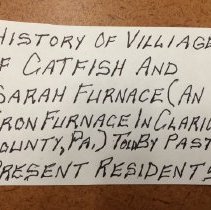 HISTORY OF VILLIAGE
OF CATFISH AND
SARAH FURNACE (AN
IRON FURNACE IN CLARIO
COUNTY, PA.) TOLD BY PAST
PRESENT RESIDENTS